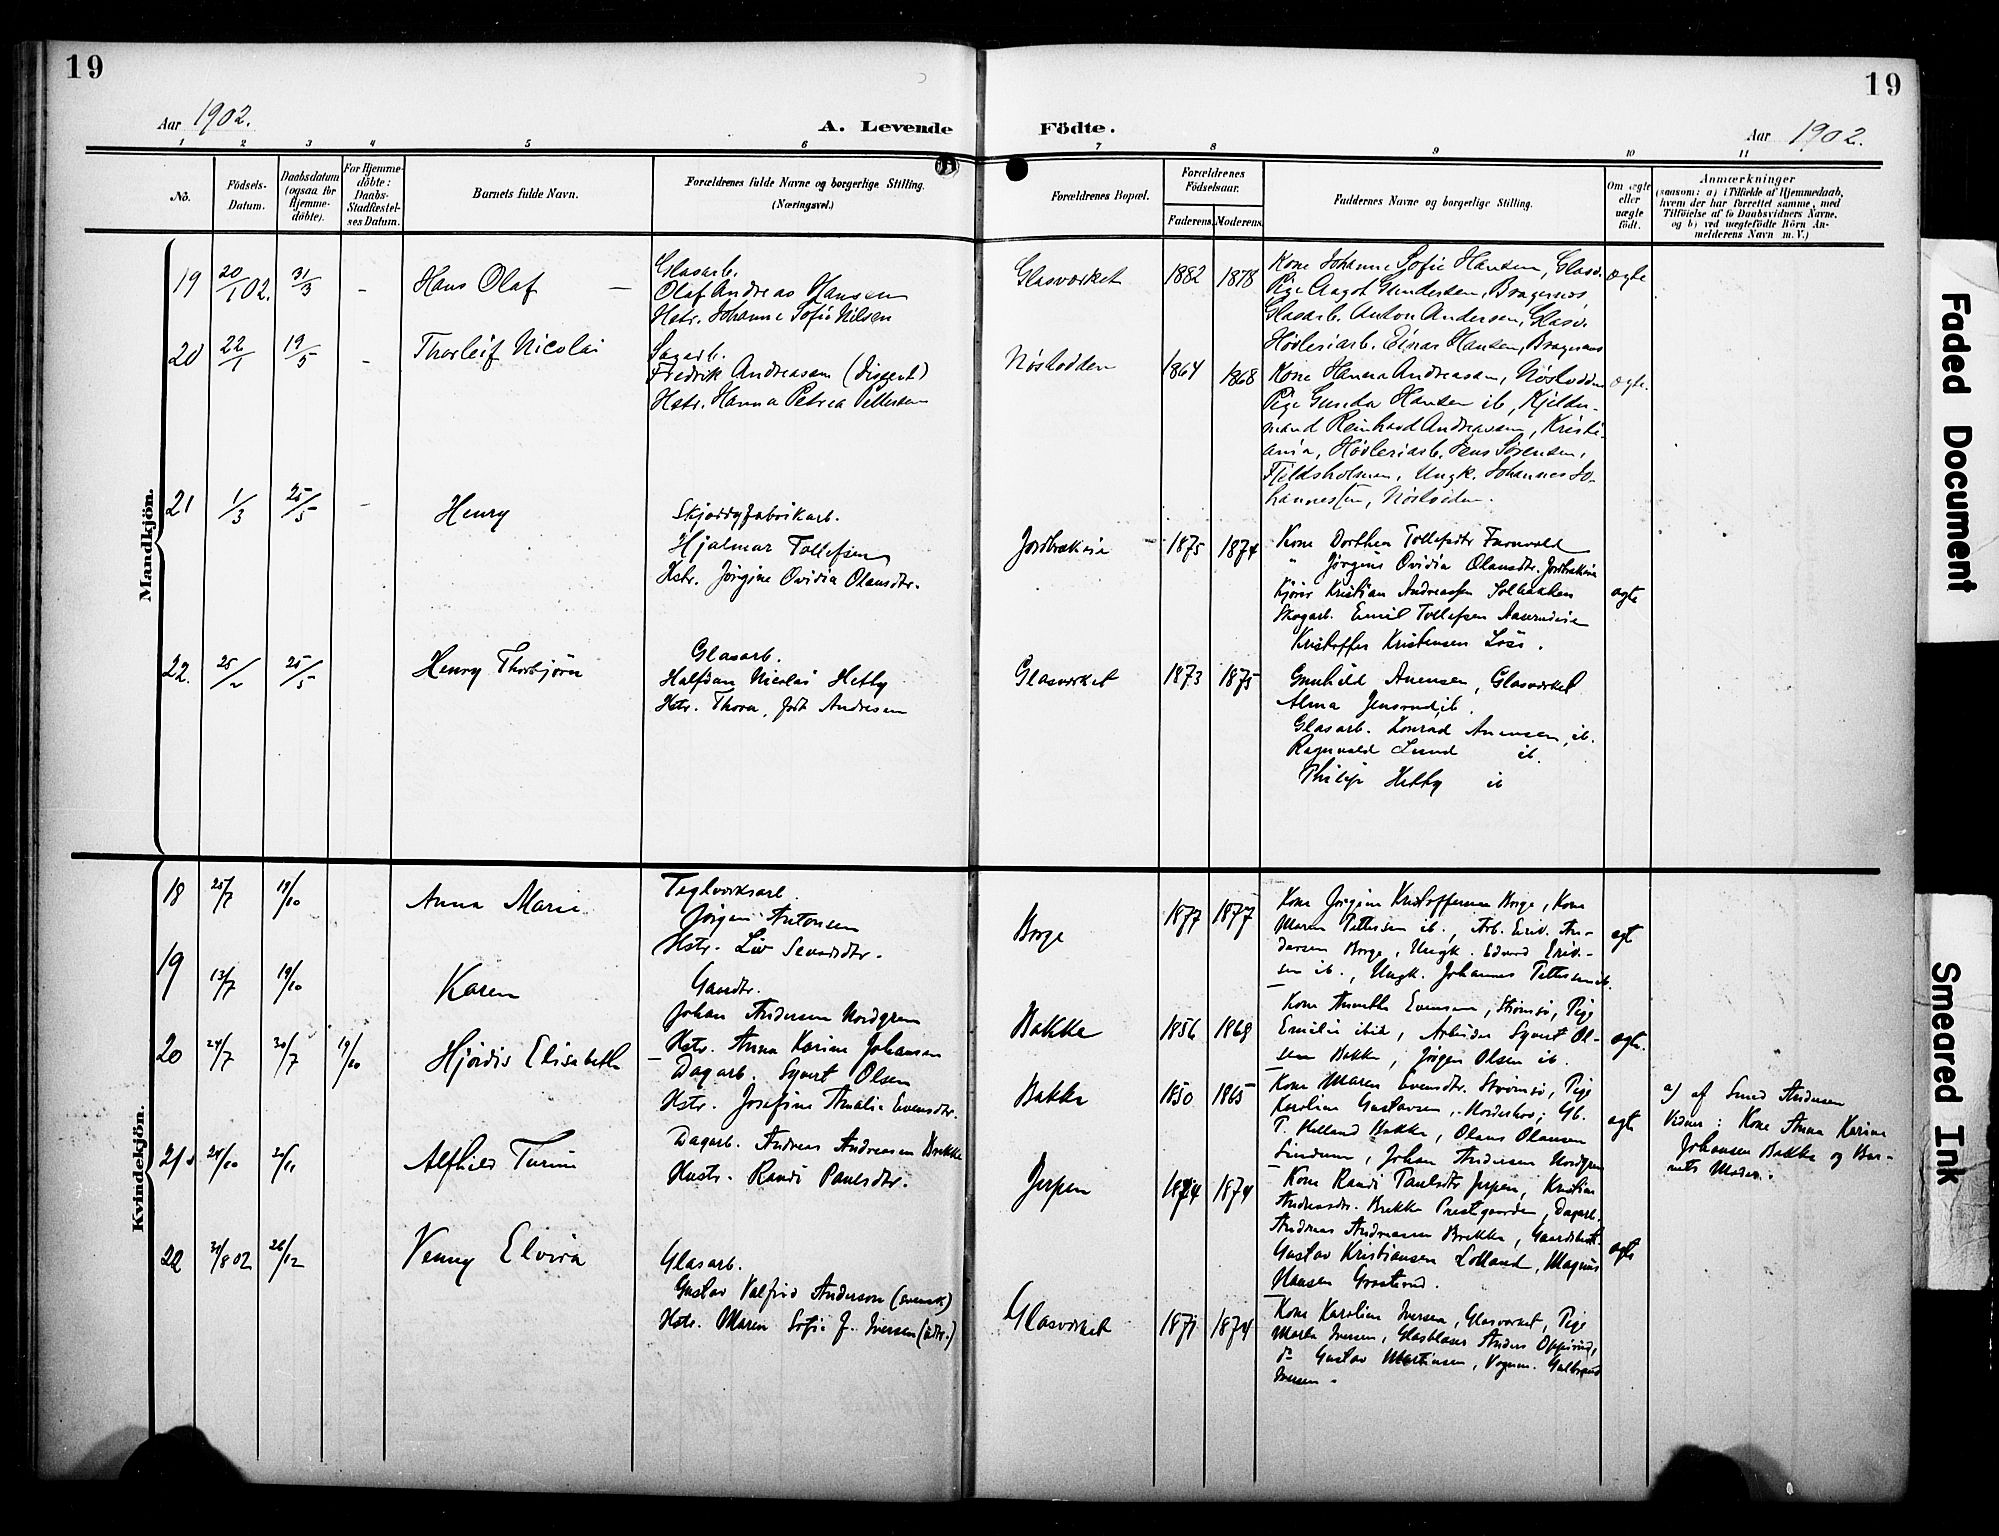 19
19
Aar 1902.
A. Levende
Födte.
Aar 1902.
1 2 3 4 5 6 7 8 9 10 11
No.
Födsels-
Datum.
Daabsdatum
(ogsaa for
Hjemme-
döbte).
For Hjemme-
döbte:
Daabs-
Stadfæstel-
ses Datum.
Barnets fulde Navn.
Forældrenes fulde Navne og borgerlige Stilling.
(Næringsvei.)
Forældrenes Bopæl.
Forældrenes
Födselsaar.
Faderens. Moderens.
Faddernes Navne og borgerlige Stilling.
Om ægte
eller
uægte
födt.
Anmærkninger
(saasom: a) i Tilfælde af Hjemmedaab,
hvem der har forrettet samme, med
Tilföielse af to Daabsvidners Navne.
og b) ved uægtefödte Börn An-
melderens Navn m. V.)
Mandkjön.
19 20/1 02. 31/3 - Hans Olaf -
Glasarb.
Olaf Andreas Hansen
Hstr. Johanne Sofie Nilsen
Glasværket 1882 1878
Kone Johanne Sofie Hansen, Glasv.
Pige Aagot Gundersen, Bragernæs
Glasarb. Anton Andersen, Glasv.
Høvleriarb. Einar Hansen, Bragernæs
ægte
20 22/1 19/5 - Thorleif Nicolai
Sagarb.
Fredrik Andreasen (dissent)
Hstr. Hanna Petrea Pettersen
Nøstodden 1864 1868
Kone Hanna Andreasen, Nøstodden
Pige Gunda Hansen ib, Kjelder-
mand Reinhard Andreassen, Kristi-
ania, Høvleriarb. Jens Sørensen,
Fjeldsholmen, Ungk. Johannes Jo-
hannessen,
ægte.
21 1/3 25/5 - Henry
Skjoddyfabrikarb.
Hjalmar Tollefsen
Hstr. Jørgine Ovidia Olausdtr.
Jordbrækveia 1875 1874
Kone Dorthea Tollefsdtr
" Jørgine Ovidia Olausdtr. Jordbrækveia
Kjører Kristian Andreassen Solbakken
Skogarb. Emil Tollefsen
Kristoffer Kristensen
ægte
22. 25/2 25/5 Henry Thorbjørn
Glasarb.
Halfdan Nicolai Hetby
Hstr. Thora, født Andresen
Glasværket 1873 1875
Gunhild Anensen, Glasværket
Alma Jensrud, ib.
Glasarb. Konrad Anensen, ib.
Ragnvald Lund ib.
Philip Hetby ib
Kvindekjön.
18 25/7 19/10 Anna Marie
Teglværksarb
Jørgen Antonsen
Hstr. Liv
Borge 1877 1877
Kone Jørgine Kristoffersen Borge, Kone
Maren Pettersen ib., Arb. An-
dersen Borge, Ungk. Edvard
sen ib., Ungk. Johannes Pettersen ib.
ægt
19 13/7 19/10 Karen
Johan Andersen Nordgren
Hstr. Anna Karine Johansen
Bakke 1856 1868
Kone Evensen, Strømsø, Pige
Emilie ibid, Arbeider Syvert Ol-
sen Bakke, Jørgen Olsen ib.
ægte.
20 24/7 30/7 19/10 Hjørdis Elisabeth
Dagarb. Syvert Olsen
Hstr. Josefine Amalie Evensdtr.
Bakke 1850 1865
Kone Maren Evensdtr. Strømsø, Pige
Karoline Gustavsen, Norderhov; Gb.
P. Helland Bakke, Olaus Olausen
Johan Andersen Nordgren
ægte
a) af Andersen
Vidner: Kone Anna Karine
Johansen Bakke og Bar-
nets Moder.
21 24/10 Alfhild
Dagarb. Andreas Andreasen Brekke
Hustr. Randi Paulsdtr.
Jerpen 1874 1874
Kone Randi Paulsdtr Jerpen, Kristine
Andreasdtr. Brekke Prestgaarden, Dagarb.
Andreas Andreasen Brekke, Gaardsbest.
Gustav Kristiansen Lolland, Magnus
Hansen
ægte
22 31/8 02 26/12 Venny Elvira
Glasarb.
Gustav Valfrid Anderson (svensk)
Hstr. Maren Sofie f. Iversen
Glasværket 1871 1874
Kone Karoline Iversen, Glasværket, Pige
Marta Iversen, Glasblæser Anders
do Gustav Martinsen, Vognm. Gulbrand
Iversen.
Faded Document
Smeared Ink